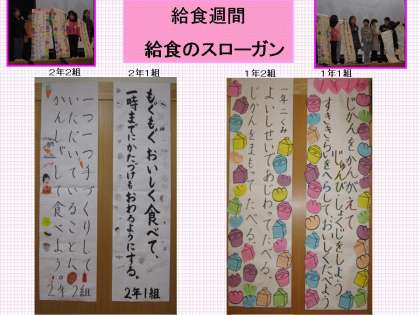 給食週間
給食のスローガン
2年2組
2年1組
1年2組
1年1組
一つ一つ手づくりして
いただいていることに
かんしゃして食べよう。
2年2組
もぐもぐ おいしく食べて、
一時までにかたづけもおわるようにする。
2年1組
一年二くみ
よいしせいであじわってたべる。
じかんをまもってたべる。
じかんをかんがえ
じゅんび しょくじをしよう
すききらいをへらして、おいしくたべよう